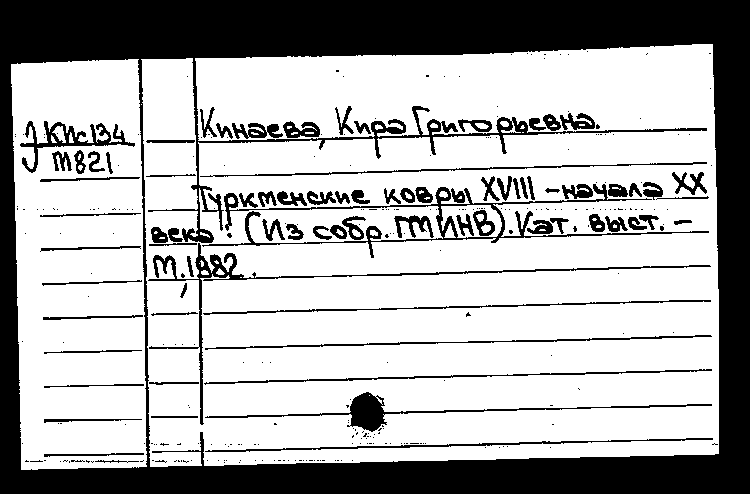 КПс134
м821
Кинаева, Кира Григорьевна.
Туркменские ковры XVIII – начала XX
века : (Из собр. ГМИНВ). Кат. выст. –
М., 1982.